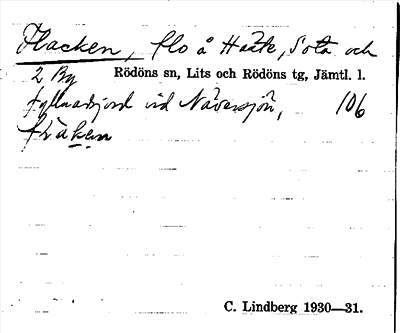 Flacken, flo å Haste, Sota och
2 By Rödöns sn, Lits och Rödöns tg, Jämtl. l.
vid Näversjön, 106
fräken
C. Lindberg 1930—31.